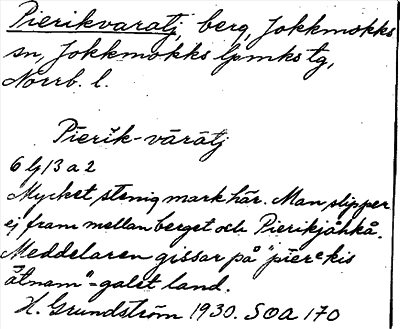 Pierikvaratj, berg, Jokkmokks
sn, Jokkmokks lpmks tg,
Norrb. l.
Pierik-vārātj
6 lj 3 a 2
Mycket stenig mark här. Man slipper
ej fram mellan berget och Pierikjåhkå.
Meddelaren gissar på "pierekis
ätnam" = galet land.
H. Grundström 1930. SOA 170